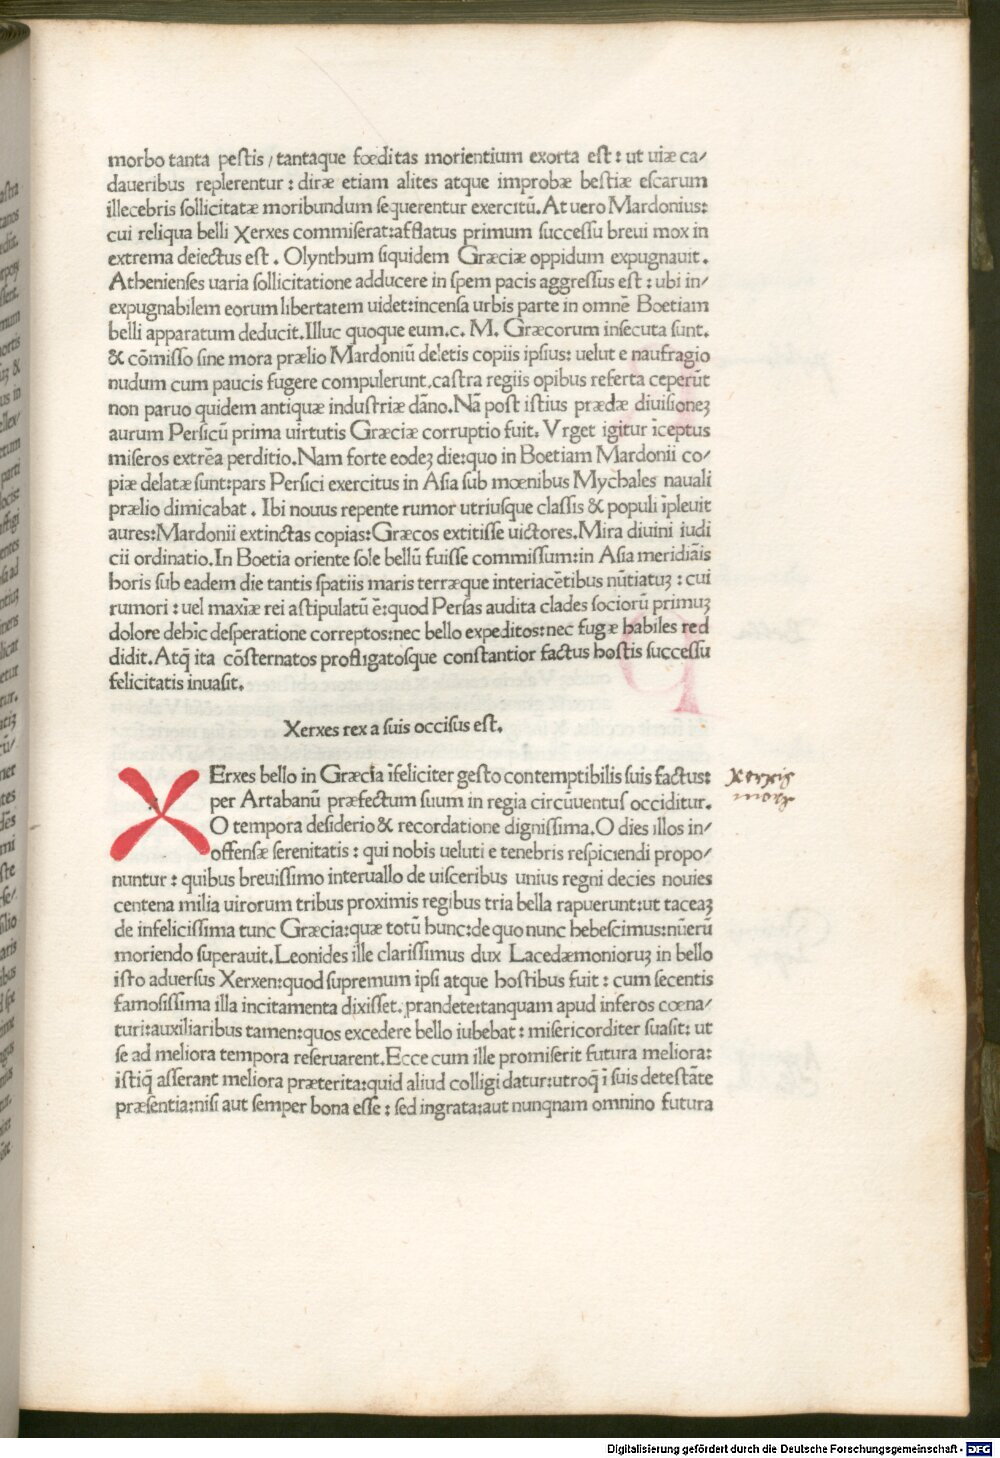 morbo tanta pestis / tantaque fœditas morientium exorta est : ut uiæ ca/
daueribus replerentur : diræ etiam alites atque improbæ bestiæ escarum
illecebris sollicitatæ moribundum sequerentur exercitū. At uero Mardonius:
cui reliqua belli Xerxes commiserat: afflatus primum successu breui mox in
extrema deiectus est . Olynthum siquidem Græciæ oppidum expugnauit .
Athenienses uaria sollicitatione adducere in spem pacis aggressus est : ubi in/
expugnabilem eorum libertatem uidet: incensa urbis parte in omnē Boetiam
belli apparatum deducit. Illuc quoque eum .c. M. Græcorum insecuta sunt.
& cōmisso sine mora prælio Mardoniū deletis copiis ipsius: uelut e naufragio
nudum cum paucis fugere compulerunt. castra regiis opibus referta ceperūt
non paruo quidem antiquæ industriæ dāno. Nā post istius prædæ diuisioneꝫ
aurum Persicū prima uirtutis Græciæ corruptio fuit. Vrget igitur īceptus
miseros extrēa perditio. Nam forte eodeꝫ die: quo in Boetiam Mardonii co/
piæ delatæ sunt: pars Persici exercitus in Asia sub mœnibus Mychales nauali
prælio dimicabat . Ibi nouus repente rumor utriusque classis & populi īpleuit
aures: Mardonii extinctas copias: Græcos extitisse uictores. Mira diuini iudi
cii ordinatio. In Boetia oriente sole bellū fuisse commissum: in Asia meridiāis
horis sub eadem die tantis spatiis maris terræque interiacētibus nūtiatuꝫ : cui
rumori : uel maxīæ rei astipulatū ē: quod Persas audita clades sociorū primuꝫ
dolore dehīc desperatione correptos: nec bello expeditos: nec fugæ habiles red
didit. Atq̄ ita cōsternatos profligatosque constantior factus hostis successu
felicitatis inuasit.
Xerxes rex a suis occisus est.
XErxes bello in Græcia īfeliciter gesto contemptibilis suis factus:
per Artabanū præfectum suum in regia circūuentus occiditur.
O tempora desiderio & recordatione dignissima. O dies illos in/
offensæ serenitatis : qui nobis ueluti e tenebris respiciendi propo/
nuntur : quibus breuissimo interuallo de uisceribus unius regni decies nouies
centena milia uirorum tribus proximis regibus tria bella rapuerunt: ut taceaꝫ
de infelicissima tunc Græcia: quæ totū hunc: de quo nunc hebescimus: nūerū
moriendo superauit. Leonides ille clarissimus dux Lacedæmonioruꝫ in bello
isto aduersus Xerxen: quod supremum ipsi atque hostibus fuit : cum secentis
famosissima illa incitamenta dixisset. prandete: tanquam apud inferos cœna/
turi: auxiliaribus tamen: quos excedere bello iubebat : misericorditer suasit: ut
se ad meliora tempora reseruarent. Ecce cum ille promiserit futura meliora:
istiq̄ asserant meliora præterita: quid aliud colligi datur: utroq̄ ī suis detestāte
præsentia: nisi aut semper bona esse : sed ingrata: aut nunqnam omnino futura
Xerxis
mors
Digitalisierung gefördert durch die Deutsche Forschungsgemeinschaft - DFG